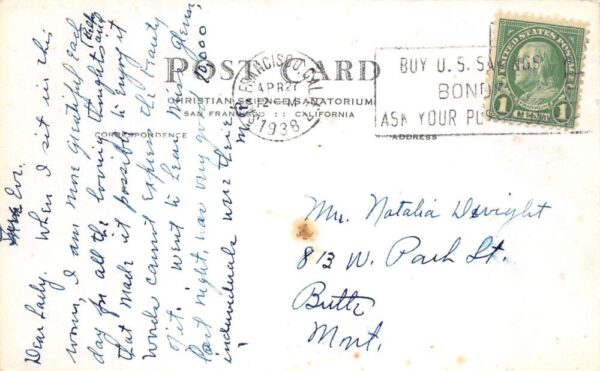 POST CARD
CHRISTIAN SCIENCE SANATORIUM
SAN FRANCISCO :: CALIFORNIA
CORRESPONDENCE
ADDRESS
SAN FRANCISCO, CAL.
APR 27
2 - PM
1938
BUY U.S. SAVINGS
BOND
ASK YOUR PO
UNITED STATES POSTAGE
FRANKLIN
1 CENT 1
Eve.
Dear Laily. When I sit in this
room, I am more grateful each
day for all the loving thoughts and
that made it possible to enjoy it
words cannot express the beauty
of it. Went to hear Miss Glenn
last night, was very good, 10,000
individuals were there.
Natalia Dwight
813 W. Park St.
Butte
Mont.